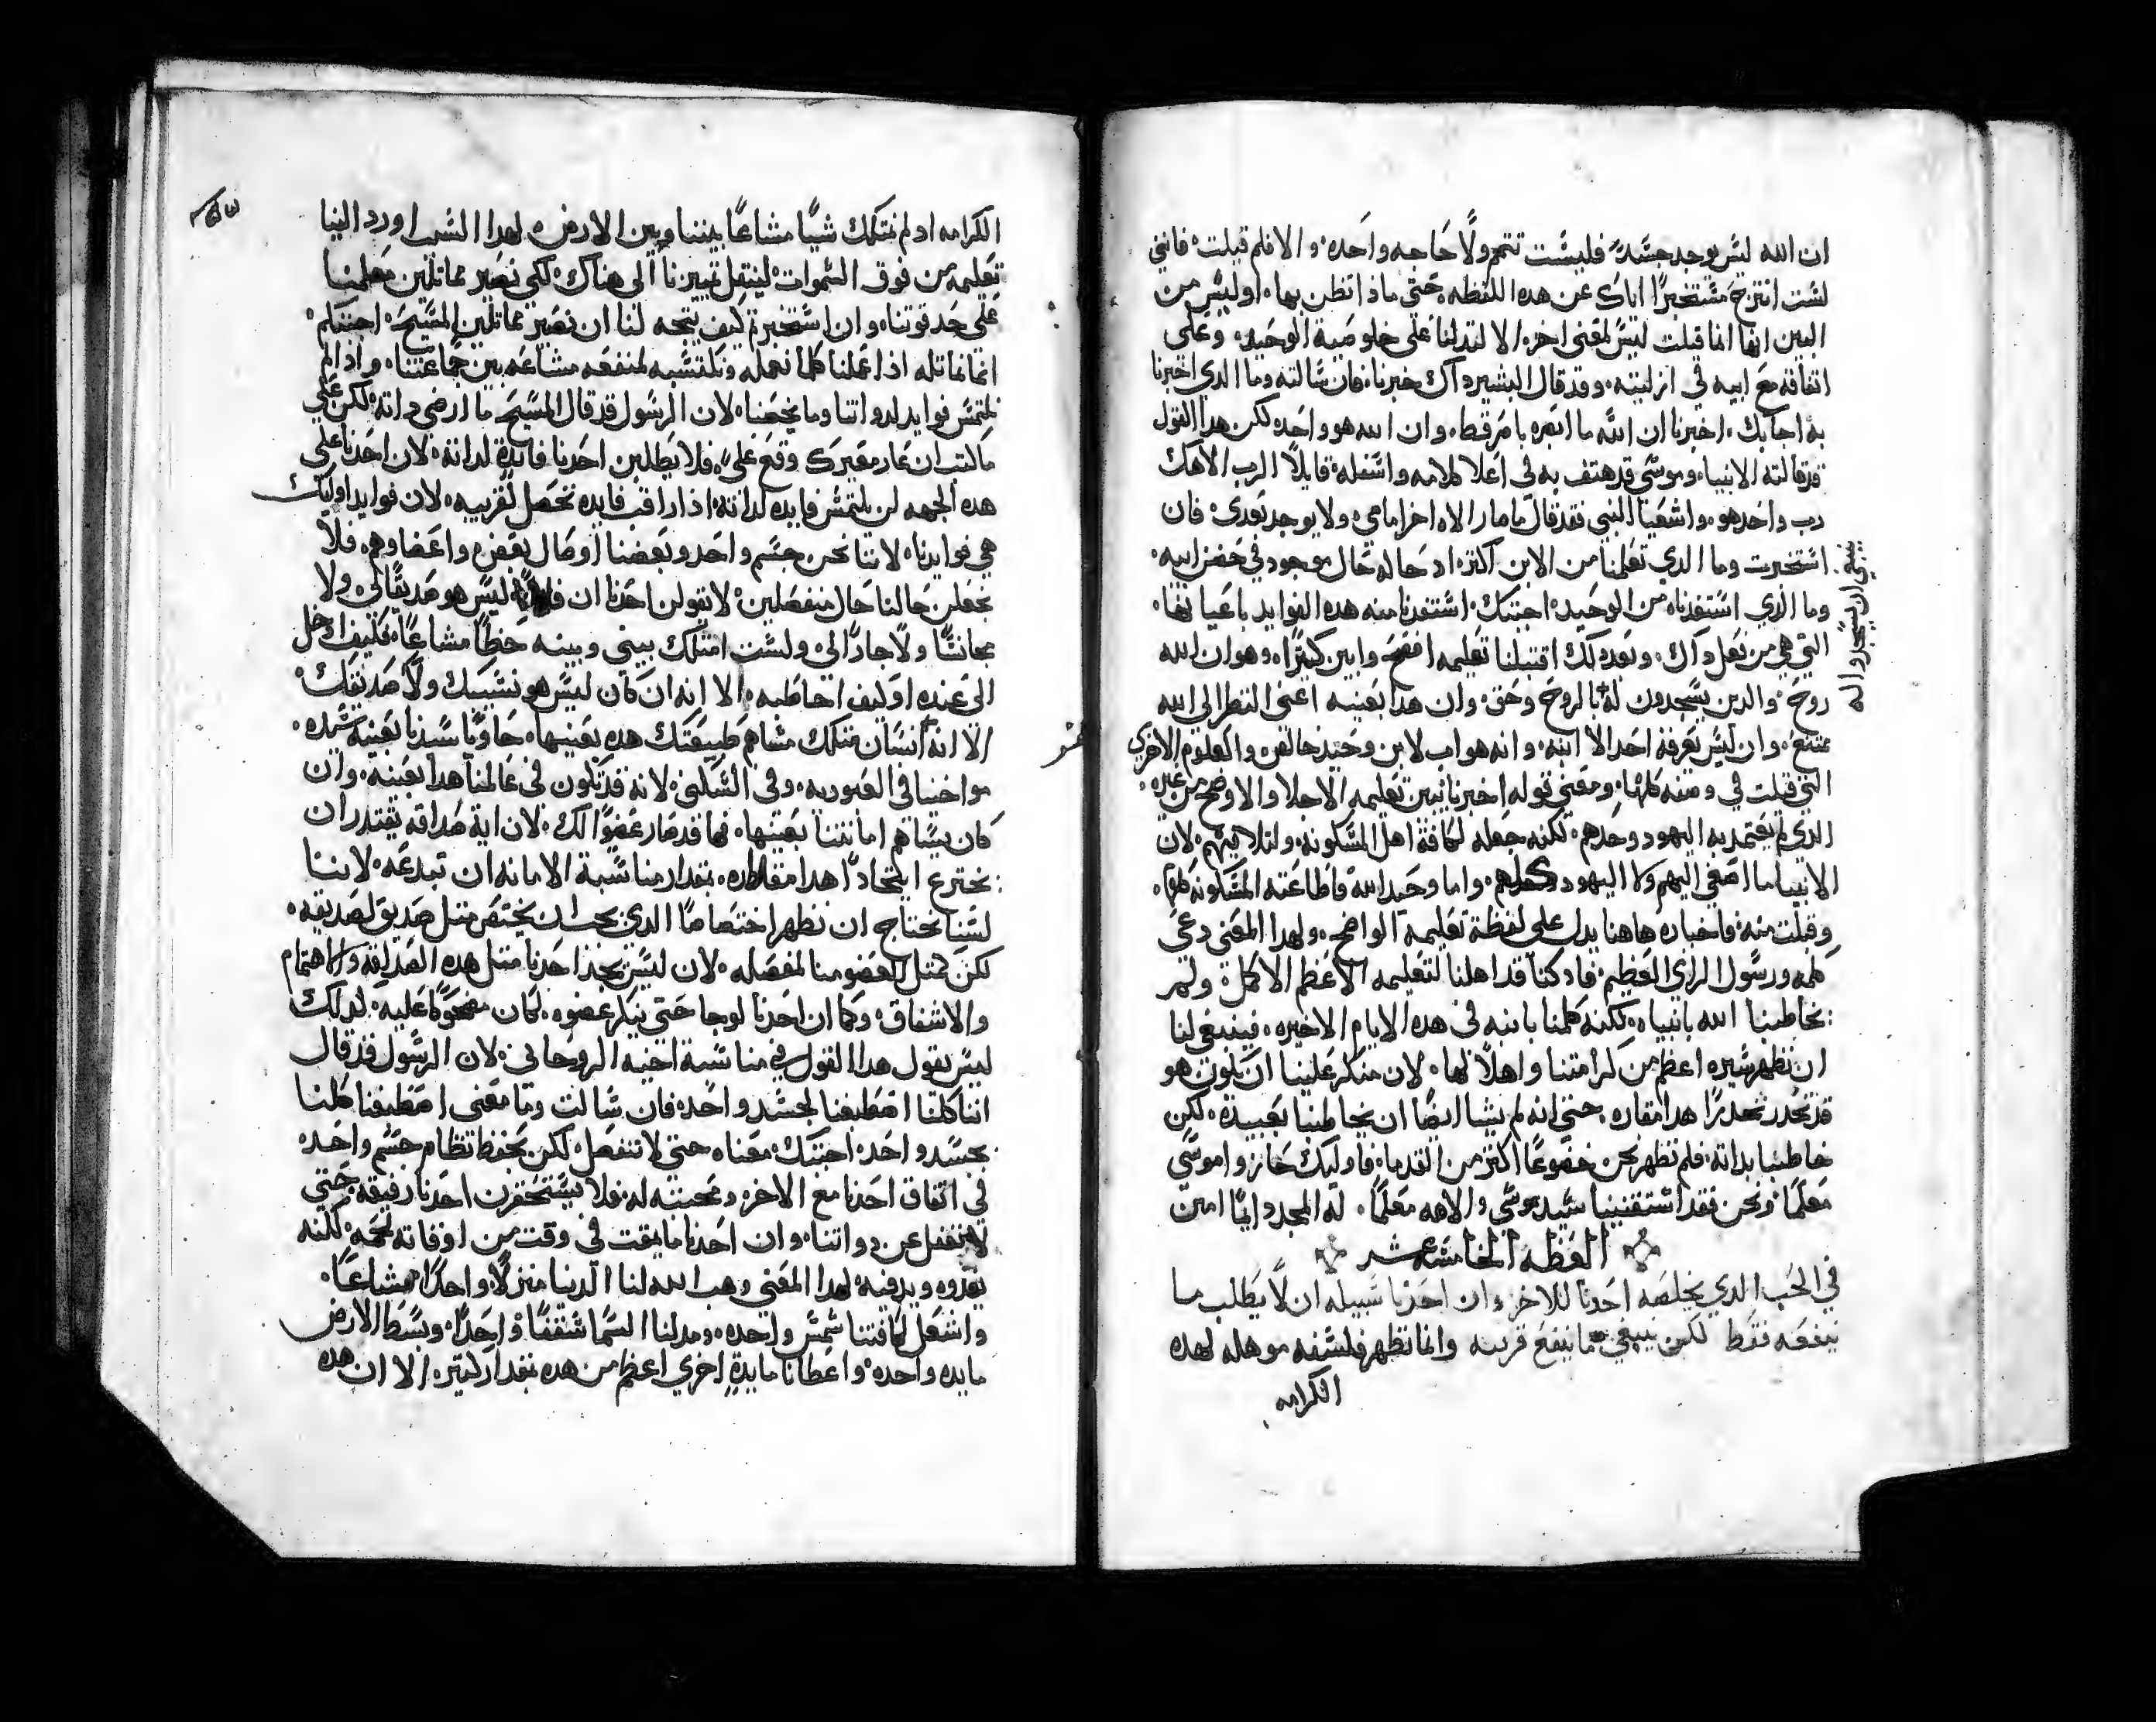 ان الله ليس يوجد جسد فليست تتم ولا حاجه واحده والا فلم قيلت فانني
لست انتزح مستخبرا اياك عن هده اللفظه حتي ماذا تظن بها اوليس من
البين انها انما قيلت ليس لمعني اخر الا لتدلنا علي خلوصية الوحيد وعلي
اتفاقه مع ابيه في ازليته وقد قال البشير داك خبرنا فان سالته وما الدي اخبرنا
به اجابك اخبرنا ان الله ما ابصره باصر قط وان الله هو واحد لكن هدا القول
قد قالته الانبيا وموسي قد هتف به في اعلا كلامه واسفله قايلا الرب الاهك
رب واحد هو واشعيا النبي فقد قال ما صار الاه اخر امامي ولا يوجد بعدي فان
استخبرت وما الدي تعلمنا من الابن اكتر اد حاله حال موجود في حضن ابيه
وما الدي استفدناه من الوحيد اجبتك استفدنا منه هده الفوايد باعيانها
التي هي من فعل داك وبعد دلك اقتبلنا تعليمه افصح وابين كتيرا وهو ان الله
روح والدين يسجدون له بالروح وحق وان هدا بعينه اعني النظر الي الله
ينبغي ان يسجدوا له
ممتنع وان ليس يعرفه احد الا ابنه وانه هو اب لابن وحيد خالص والعلوم الاخري
التي قيلت في وصفه كلها ومعني قوله اخبرنا يبين تعليمه الاجلا والاوضح من غيره
الدي لم يعتمد به اليهود وحدهم لكنه جعله لكافة اهل المسكونه ولتلاميدهم لان
الانبيا ما اصغي اليهم ولا اليهود كلهم واما وحيد الله فاطاعته المسكونه كلها
وقبلت منه فاخباره هاهنا يدل علي لفظة تعليمه الواضح ولهدا المعني دعي
كلمه ورسول الراي العظيم فاد كنا قد اهلنا لتعليمه الاعظم الاكمل ولم
يخاطبنا الله بانبياه لكنه كلمنا بابنه في هده الايام الاخيره فينبغي لنا
ان نظهر سيره اعظم من كرامتنا واهلا لها لان منكر علينا ان يكون هو
قد تحدر تحدرا هدا مقداره حتي انه لم يشا ايضا ان يخاطبنا بعبيده لكن
خاطبنا بداته فلم نظهر نحن خضوعا اكتر من القدما فاوليك حازوا موسي
معلما ونحن فقد استقنينا سيد موسي والاهه معلما له المجد دايما امين
العظه الخامسه عشر
في الحب الدي يخلصه احدنا للاخر وان احدنا سبيله ان لا يطلب ما
ينفعه فقط لكن يبتغي ما ينفع قريبه وانما تظهر فلسفه موهله لهده
الكرامه
الكرامه اد لم نمتلك شيا مشاعا بيننا وبين الارض لهدا السبب اورد الينا
تعليمه من فوق السموات لينتقل تمييزنا الي هناك لكي نصير مماتلين معلمنا
علي حد قوتنا وان استخبرت كيف يتجه لنا ان نصير مماتلين المسيح اجبتكم
انما نماتله اذا عملنا كلما نعمله ونكتسبه لمنفعه مشاعه بين جماعتنا واذا لم
نلتمس فوايد لدواتنا وما يخصنا لان الرسول قد قال المسيح ما ارضي داته لكن علي
ما كتب ان عار معيرك وقع علي فلا يطلبن احدنا فايدة لداته لان احدنا علي
هده الجهه لن يلتمس فايده لداته اذا راقب فايده تحصل لقريبه لان فوايد اوليك
هي فوايدنا لاننا نحن جسم واحد وبعضنا اوصال بعض واعضاوهم فلا
نجعلن حالنا حال منفصلين لا يقولن احدنا ان فلان ليس هو صديقا لي ولا
مجانسا ولا جارا لي ولست امتلك بيني وبينه حظا مشاعا فكيف ادخل
الي عنده او كيف اخاطبه الا انه ان كان ليس هو نسيبك ولا صديقك
الا انه انسان يمتلك مشاهم طبيعتك هده بعينها حاويا سيدنا بعينه
مواخيا في العبوديه وفي السكني لانه قد تكون في عالمنا هدا بعينه وان
كان يساهم امانتنا بعينها فها قد صار عضوا لك لان اية صداقه يقتدر ان
تخترع اتحادا هدا مقداره بمقدار مناسبة الامانه ان تبدعه لاننا
لسنا نحتاج ان نظهر اختصاصا الدي يجب ان يختص متل صديق لصديقه
لكن متل العضو منا لمفصله لان ليس يجد احدنا متل هده الصداقه والاهتمام
والاشفاق وكما ان احدنا لو جا حتي ينكر عضوه لكان مضحوكا عليه لدلك
ليس يقول هدا القول في مناسبة اخيه الروحاني لان الرسول قد قال
اننا كلنا اصطبغنا لجسد واحد فان سالت وما معني اصطبغنا كلنا
بجسد واحد اجبتك معناه حتي لا ننفصل لكن نحفظ نظام جسم واحد
في اتفاق احدنا مع الاخر ومحبته له فلا يستحقرن احدنا رفيقه حتي
لا نغفل عن دواتنا وان احدنا ما يمقت في وقت من اوقاته لحمه لكنه
يغدوه ويدفيه لهدا المعني وهب الله لنا الدنيا منزلا واحدا مشاعا
واشعل لكافتنا شمس واحده ومد لنا السما سقفا واحدا وبسط الارض
مايده واحده واعطانا مايدة اخري اعظم من هده بمقدار كتير الا ان هده